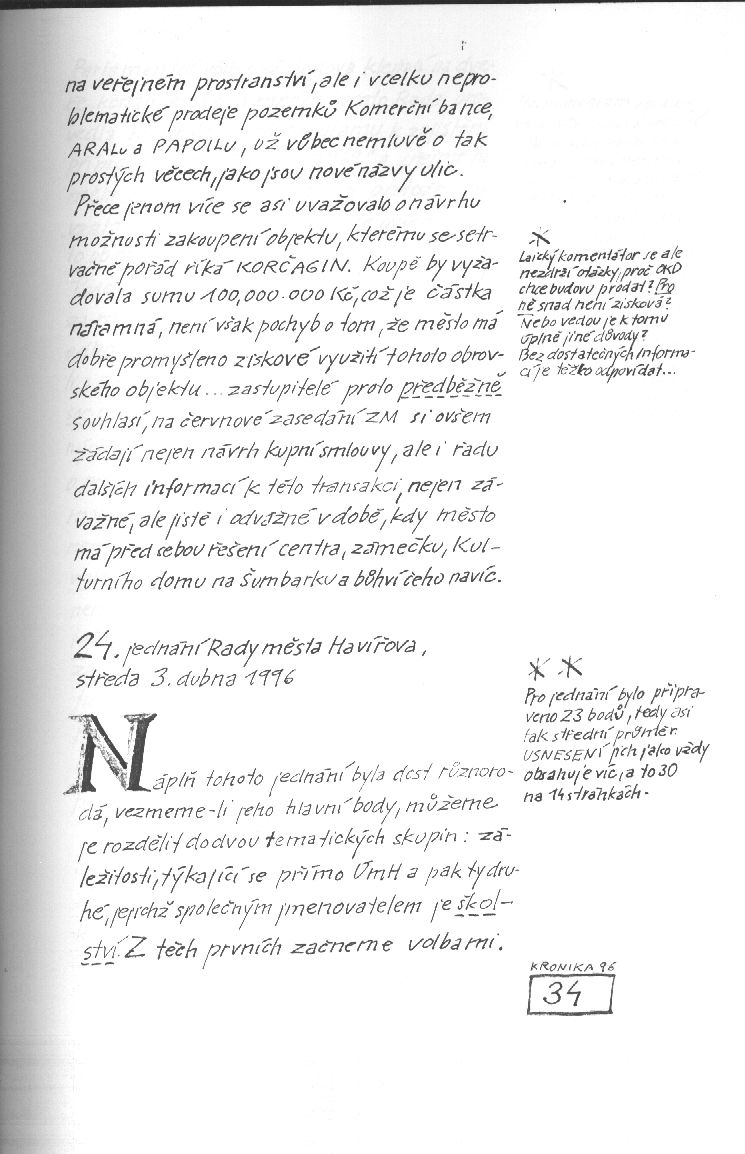 na veřejném prostranství, ale i v celku nepro-
blematické prodeje pozemků Komerční bance,
ARALu a PAPOILU, už vůbec nemluvě o tak
prostých věcech, jako jsou nové názvy ulic.
Přece jenom více se asi uvažovalo o návrhu
možnosti zakoupení objektu, kterému se setr-
vačně pořád říká KORČAGIN. Koupě by vyža-
dovala sumu 100,000.000 Kč, což je částka
náramná, není však pochyb o tom, že město má
dobře promyšleno ziskové využití tohoto obrov-
ského objektu... zastupitelé proto předběžně
souhlasí, na červnové zasedání ZM si ovšem
žádají nejen návrh kupní smlouvy, ale i řadu
dalších informací k této transakci, nejen zá-
važné, ale jistě i odvážné v době, kdy město
má před sebou řešení centra, zámečku, Kul-
turního domu na Šumbarku a bůhví čeho navíc.
*
Laický komentátor se ale
nezdrží otázky, proč OKD
chce budovu prodat? Pro
ně snad není zisková?
Nebo vedou je k tomu
úplně jiné důvody?
Bez dostatečných informa-
cí je těžko odpovídat...
24. jednání Rady města Havířova,
středa 3. dubna 1996
Náplň tohoto jednání byla dost různoro-
dá, vezmeme-li jeho hlavní body, můžeme
je rozdělit do dvou tematických skupin: zá-
ležitosti, týkající se přímo ÚmH a pak ty dru-
hé, jejichž společným jmenovatelem je škol-
ství. Z těch prvních začneme volbami.
* *
Pro jednání bylo připra-
veno 23 bodů, tedy asi
tak střední průměr.
USNESENÍ jich jako vždy
obsahuje víc, a to 30
na 14 stránkách.
KRONIKA 96
34